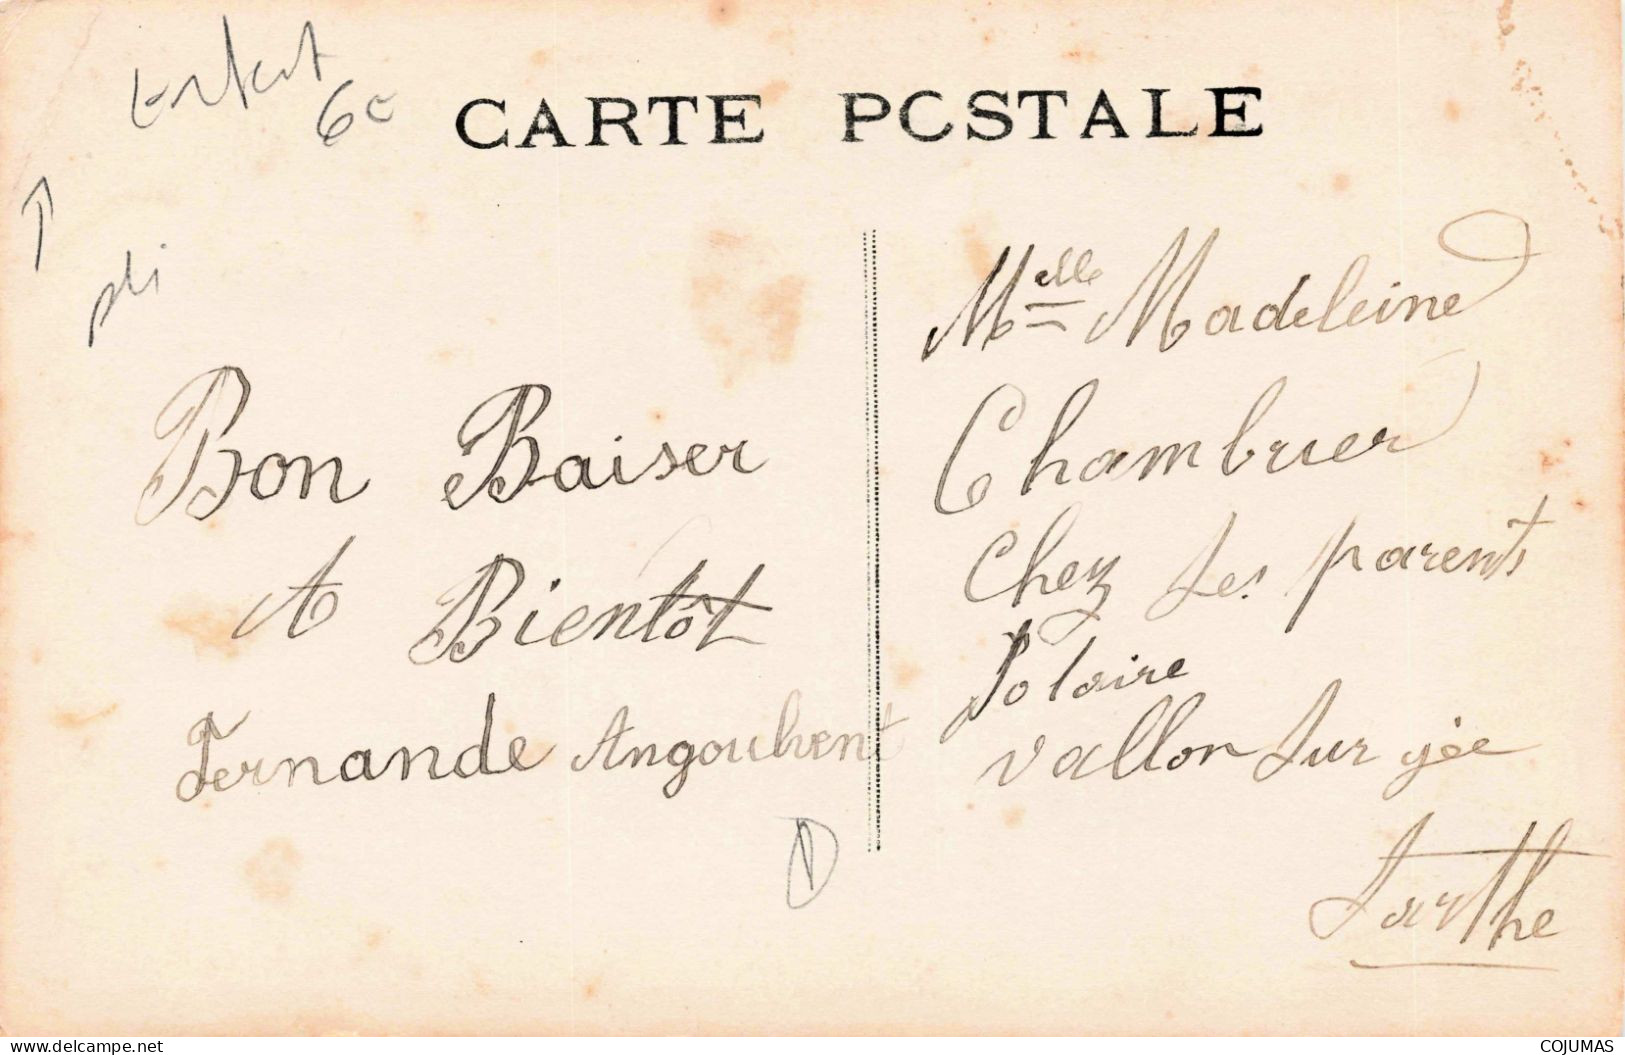 Enfant
6c
CARTE POSTALE
pli
Bon Baiser
A Bientôt
Fernande Angoulvent
D
Melle Madeleine
Chambrier
Chez Ses parents
Solaire
vallon Sur gée
Sarthe
www.delcampe.net
COJUMAS